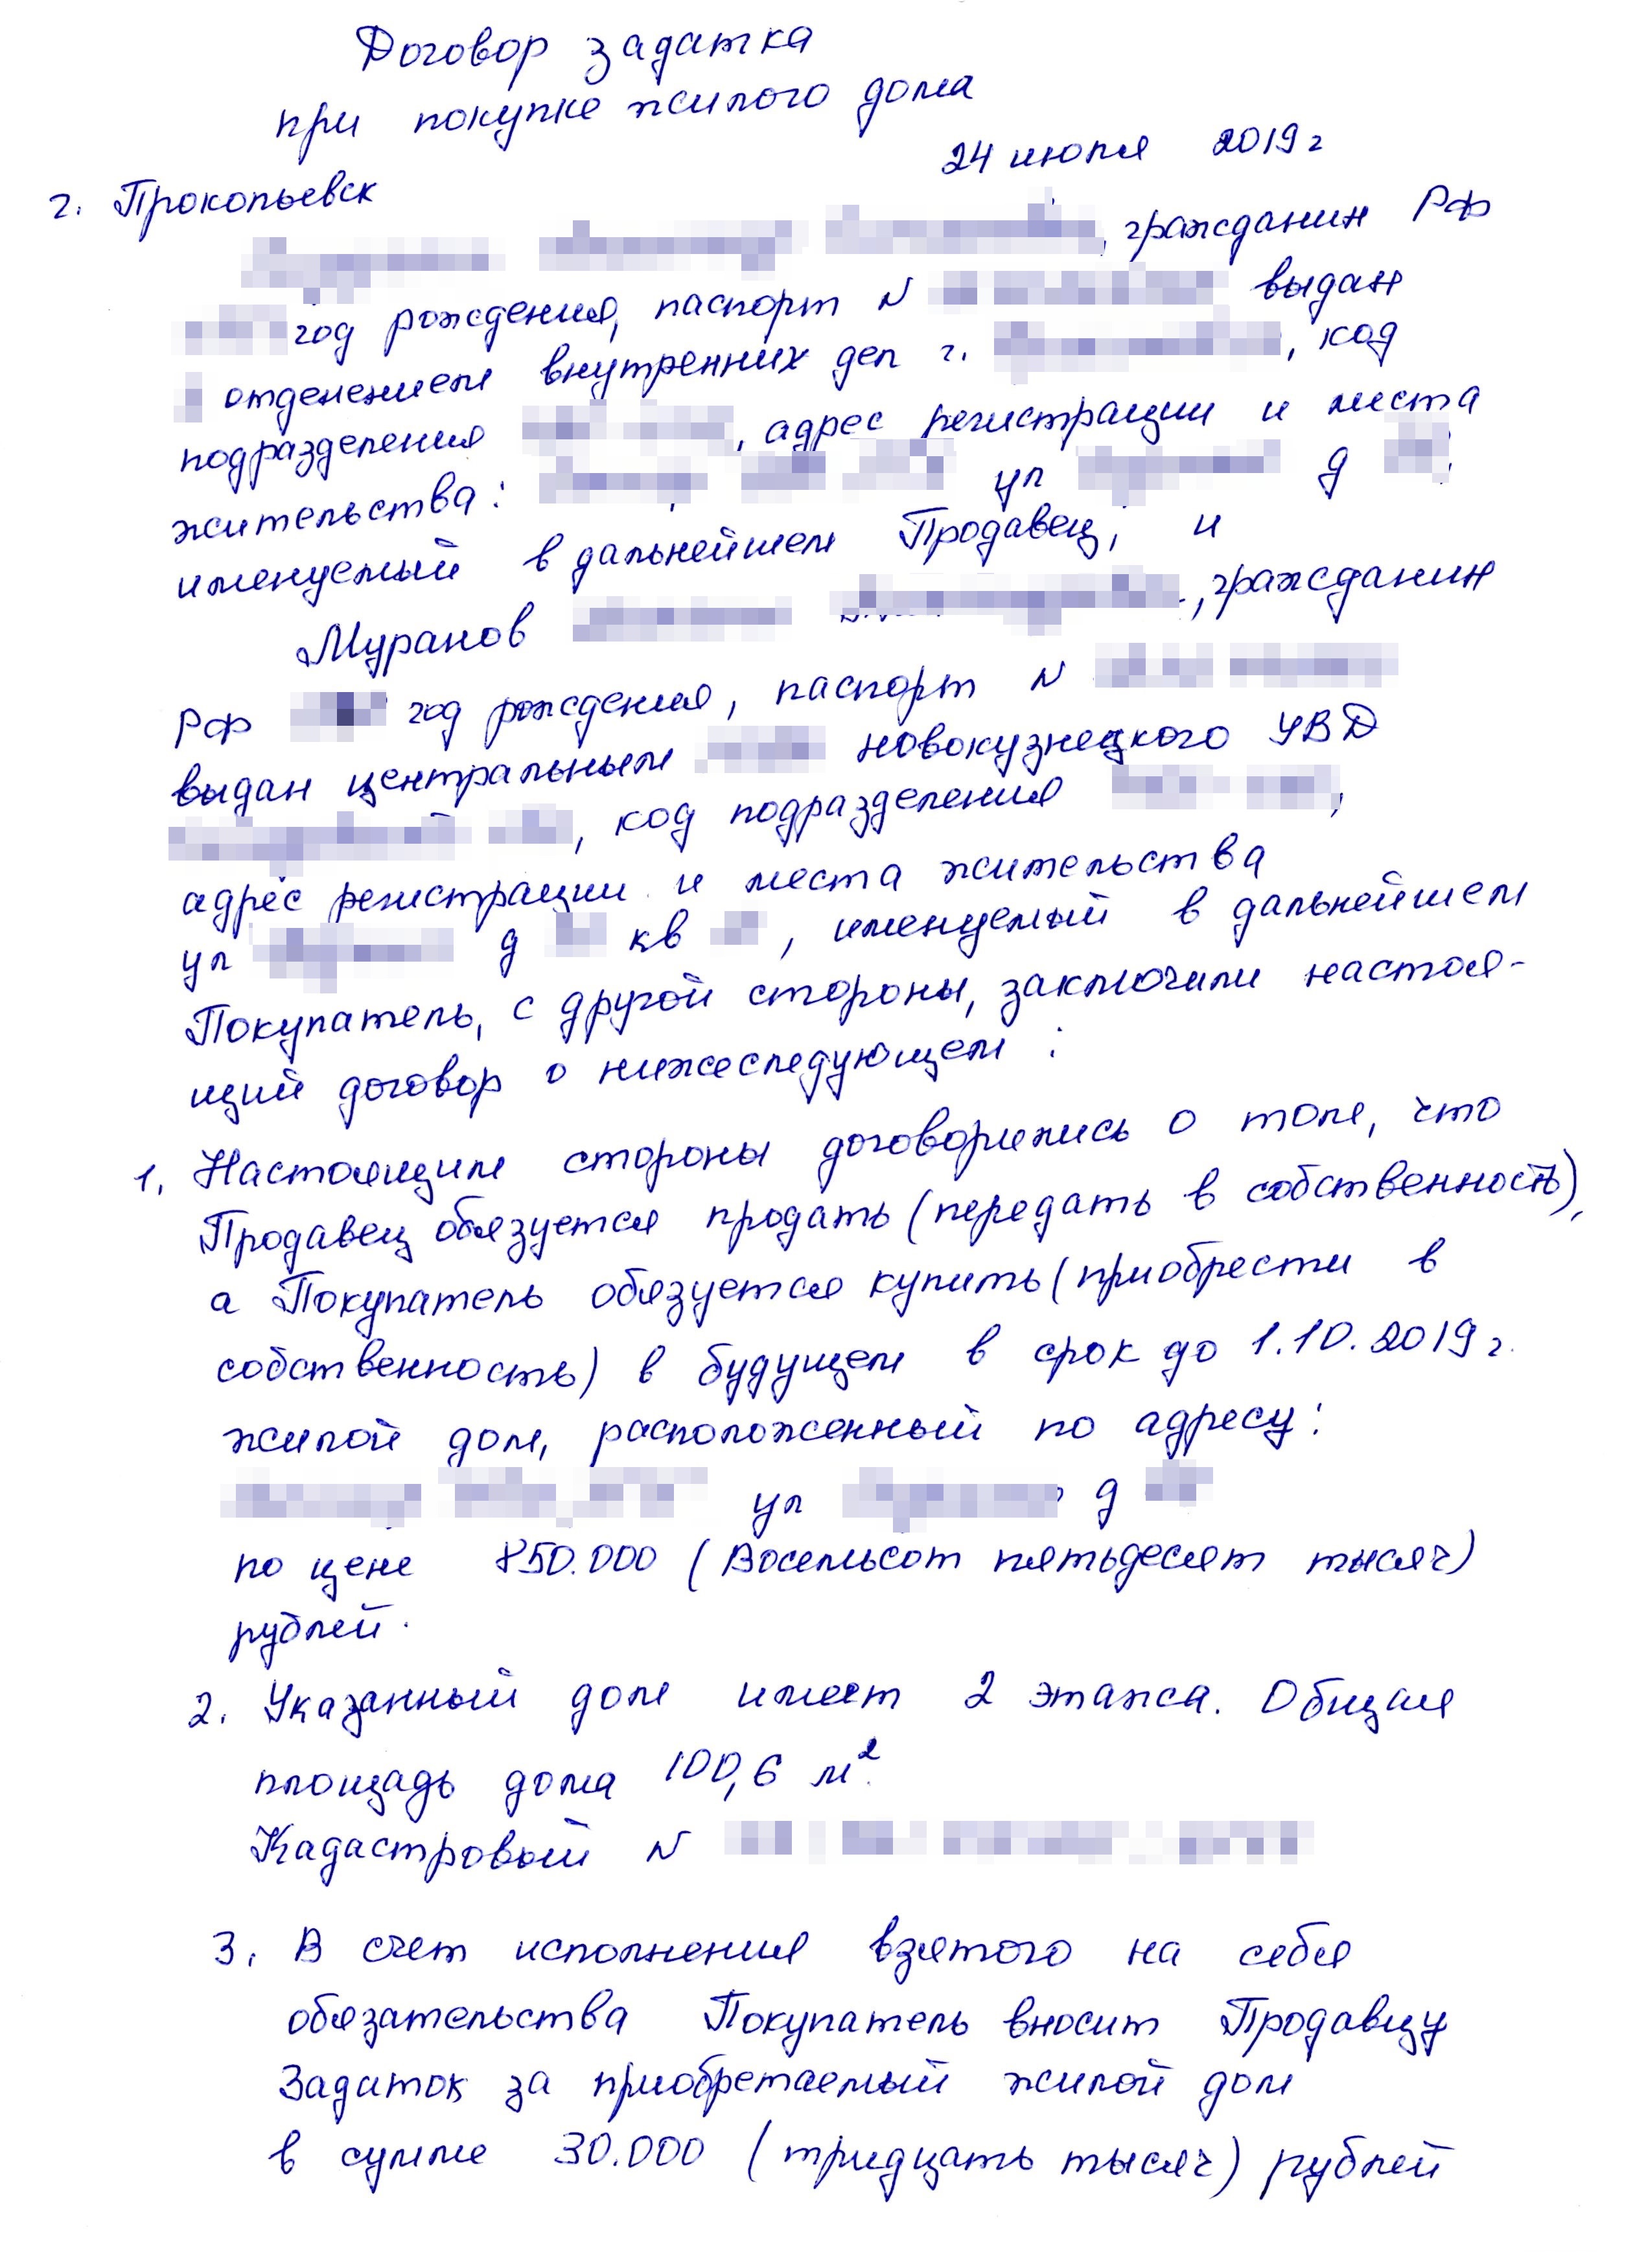 Договор задатка
при покупке жилого дома
24 июля 2019 г
г. Прокопьевск
, гражданин РФ
год рождения, паспорт N выдан
отделением внутренних дел г. , код
подразделения , адрес регистрации и места
жительства: ул д ,
именуемый в дальнейшем Продавец, и
Муранов , гражданин
РФ год рождения, паспорт N
выдан центральным новокузнецкого УВД
, код подразделения ,
адрес регистрации и места жительства
ул д кв , именуемый в дальнейшем
Покупатель, с другой стороны, заключили настоя-
щий договор о нижеследующем:
1. Настоящим стороны договорились о том, что
Продавец обязуется продать (передать в собственность),
а Покупатель обязуется купить (приобрести в
собственность) в будущем в срок до 1.10.2019 г.
жилой дом, расположенный по адресу:
ул д
по цене 850.000 (Восемьсот пятьдесят тысяч)
рублей.
2. Указанный дом имеет 2 этажа. Общая
площадь дома 100,6 м².
Кадастровый N
3. В счет исполнения взятого на себя
обязательства Покупатель вносит Продавцу
Задаток за приобретаемый жилой дом
в сумме 30.000 (тридцать тысяч) рублей